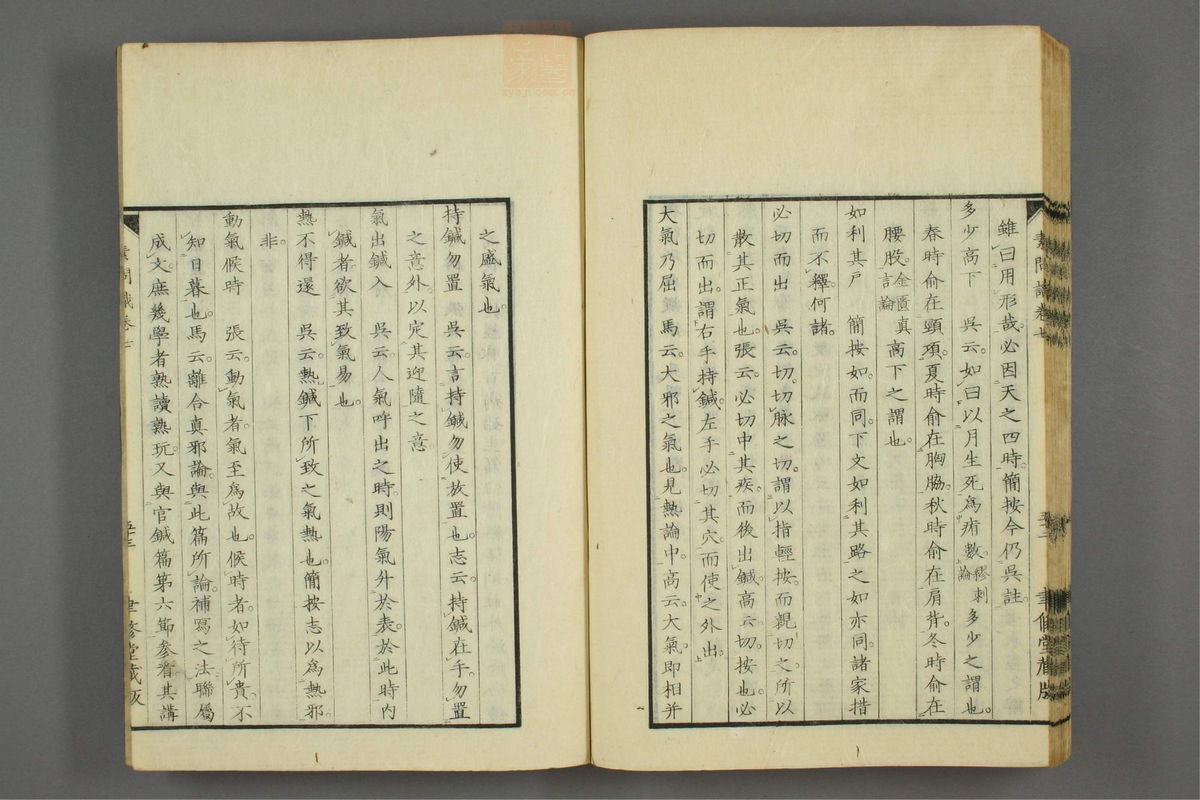 素問識卷七
雖曰用形哉必因天之四時簡按今仍吳註
多少高下　吳云如曰以月生死爲痏數繆刺論多少之謂也
春時俞在頸項夏時俞在胸脇秋時俞在肩背冬時俞在
腰股金匱真言論高下之謂也
如利其戸　簡按如而同下文如利其路之如亦同諸家措
而不釋何諸
必切而出　吳云切切脉之切謂以指輕按而親切之所以
散其正氣也張云必切中其疾而後出鍼高云切按也必
切而出謂右手持鍼左手必切其穴而使之外出
大氣乃屈　馬云大邪之氣也見熱論中高云大氣即相并
之盛氣也
持鍼勿置　吳云言持鍼勿使放置也志云持鍼在手勿置
之意外以定其迎隨之意
氣出鍼入　吳云人氣呼出之時則陽氣外於表於此時内
鍼者欲其致氣易也
熱不得還　吳云熱鍼下所致之氣熱也簡按志以爲熱邪
非
動氣候時　張云動氣者氣至爲故也候時者如待所貴不
知日暮也馬云離合真邪論與此篇所論補寫之法聯屬
成文庶幾學者熟讀熟玩又與官鍼篇第六節參看其講
素問識卷七
五十三
聿修堂藏版